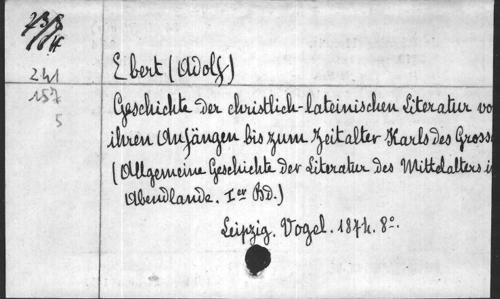 241
157
5
Ebert (Adolf)
Geschichte der christlich-lateinischen Literatur vo
ihren Anfängen bis zum Zeitalter Karls des Grosse
(Allgemeine Geschichte der Literatur des Mittelalters i
Abendlande. Ier Bd.)
Leipzig. Vogel. 1874. 8°.